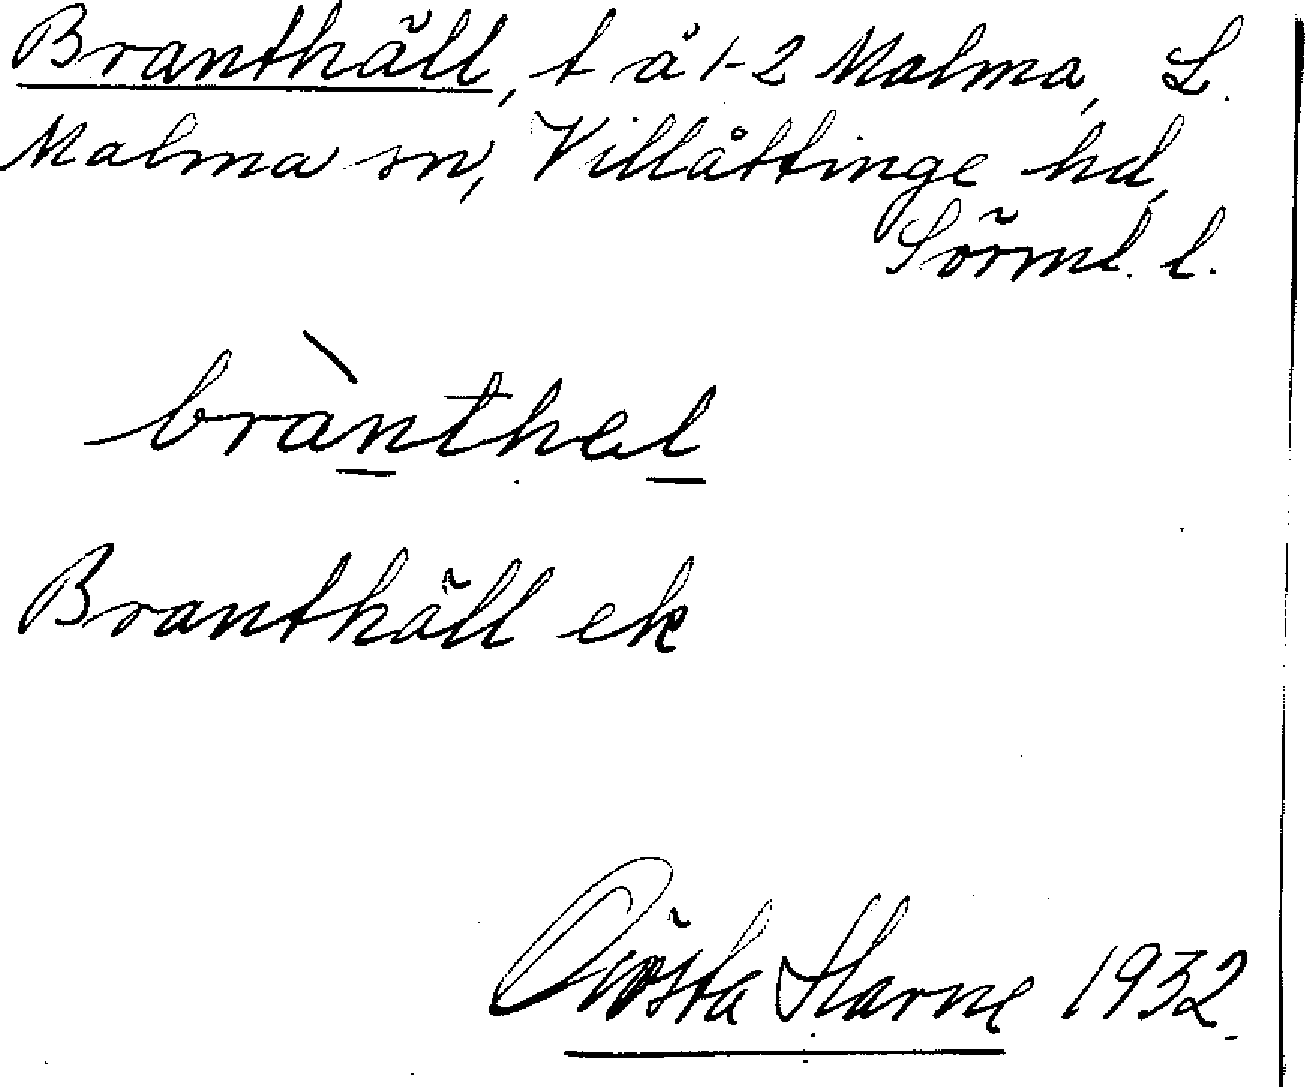 Branthäll, t å 1-2 Malma, L.
Malma sn, Villåttinge hd,
Sörml. l.
brànthal
Branthäll ek
Gösta 1932.